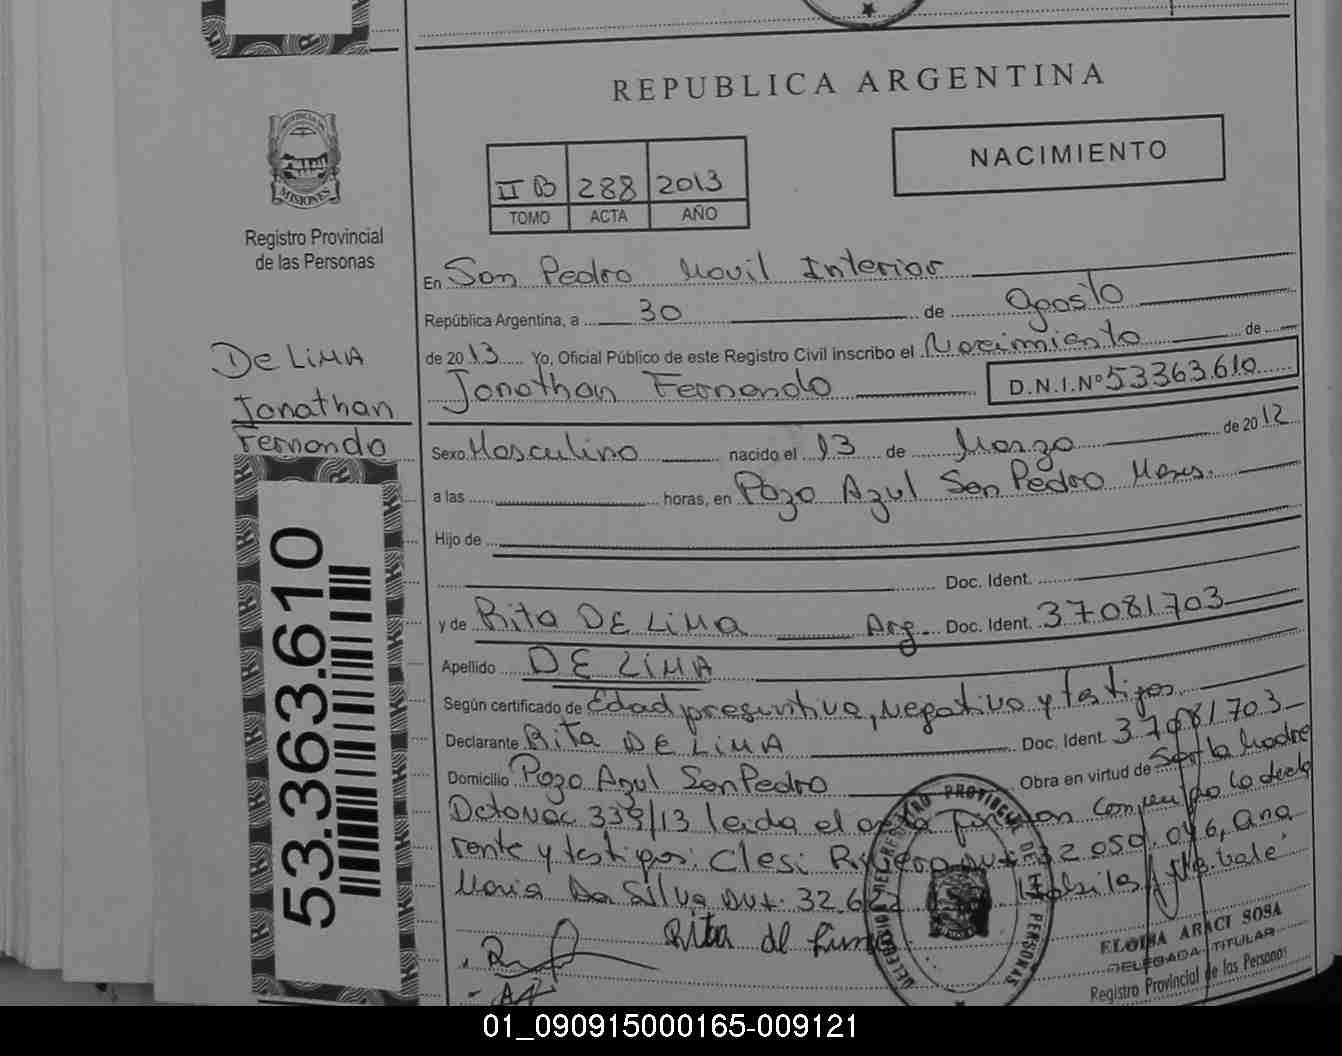 REPUBLICA ARGENTINA
PROVINCIA DE
MISIONES
Registro Provincial
de las Personas
II B 288 2013
TOMO ACTA AÑO
NACIMIENTO
En San Pedro Movil Interior
República Argentina, a 30 de Agosto
de 2013 Yo, Oficial Público de este Registro Civil inscribo el Nacimiento de
Jonathan Fernando D.N.I.Nº 53363.610
DE LiMA
Jonathan
Fernando
Sexo Masculino nacido el 13 de Marzo de 2012
a las horas, en Pozo Azul San Pedro Mnes.
Hijo de
Doc. Ident.
y de Rita DE LiMA Arg. Doc. Ident. 37081703
Apellido DE LiMA
Según certificado de Edad presuntiva, Negativo y testigos
Declarante Rita DE LiMA Doc. Ident. 37081703
Domicilio Pozo Azul San Pedro Obra en virtud de Ser la Madre
339/13 leida el acta firman conmigo la decla
rante y testigos: Clesi 32.050.046, Ana
Maria Da Silva DNI. 32.62
Rita de Lima
53.363.610
DELEGACION DEL REGISTRO PROVINCIAL DE LAS PERSONAS
ELOISA ARACI SOSA
DELEGADA TITULAR
Registro Provincial de las Personas
01_090915000165-009121